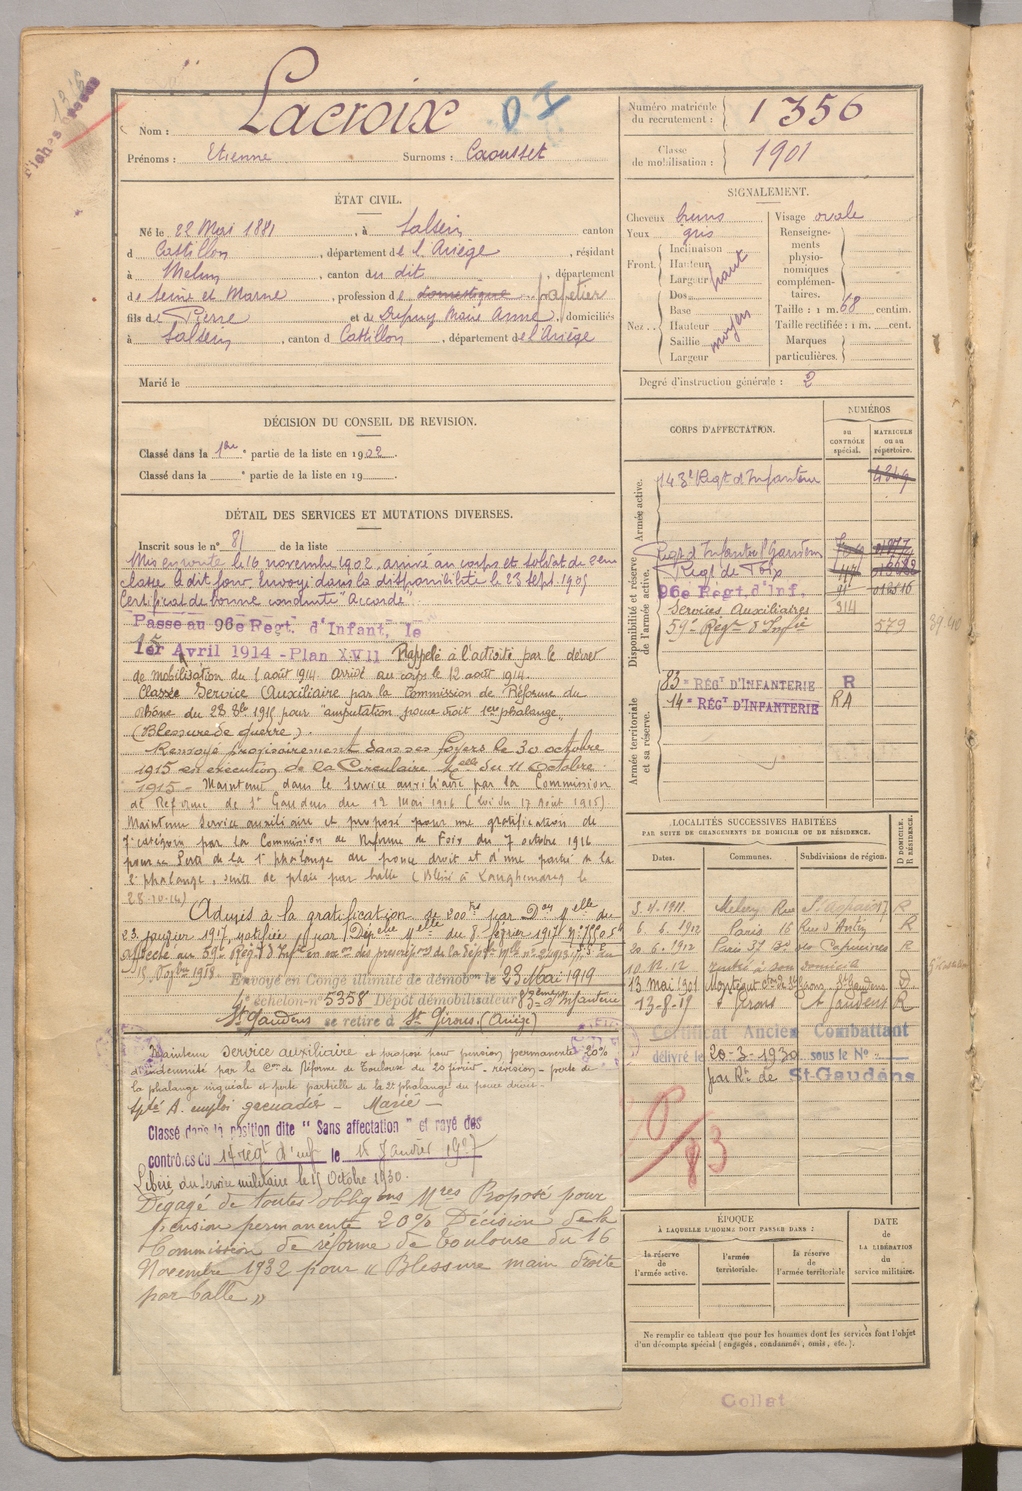 Lacroix
D I
Nom :
Prénoms : Etienne Surnoms : Caousset
Numéro matricule du recrutement : 1356
Classe de mobilisation : 1901
ÉTAT CIVIL.
Né le 22 Mai 1881, à Salsein canton
d Castillon, département de l'Ariège, résidant
à Melun, canton du dit, département
de Seine et Marne, profession de domestique papetier
fils de Pierre et de Dupuy Marie Anne, domiciliés
à Salsein, canton d Castillon, département de l'Ariège
Marié le
SIGNALEMENT.
Cheveux bruns
Yeux gris
Front. Inclinaison
Hauteur haut
Largeur
Nez. Dos
Base
Hauteur moyen
Saillie
Largeur
Visage ovale
Renseignements physionomiques complémentaires.
Taille : 1 m. 68 centim.
Taille rectifiée : 1 m. cent.
Marques particulières.
Degré d'instruction générale : 2
DÉCISION DU CONSEIL DE REVISION.
Classé dans la 1ère partie de la liste en 1902.
Classé dans la e partie de la liste en 19
DÉTAIL DES SERVICES ET MUTATIONS DIVERSES.
Inscrit sous le n° 81 de la liste
Mis en route le 16 novembre 1902, arrivé au corps et soldat de 2ème
classe le dit jour. Envoyé dans la disponibilité le 23 sept. 1905
Certificat de bonne conduite "Accordé".
Passé au 96e Regt. d'Infant. le
1er Avril 1914 - Plan XVII Rappelé à l'activité par le décret
de mobilisation du 1 août 1914. Arrivé au corps le 12 août 1914.
Classé Service Auxiliaire par la Commission de Réforme du
Rhône du 28 8bre 1915 pour "amputation pouce droit 1ere phalange"
(Blessure de guerre).
Renvoyé provisoirement dans ses foyers le 30 octobre
1915 en exécution de la Circulaire Melle du 11 Octobre
1915 - Maintenu dans le Service auxiliaire par la Commission
de Réforme de St Gaudens du 12 Mai 1916 (Loi du 17 Août 1915)
Maintenu Service auxiliaire et proposé pour une gratification de
catégorie par la Commission de Réforme de Foix du 7 octobre 1916
pour Perte de la 1e phalange du pouce droit et d'une partie de la
2e phalange, suite de plaie par balle (Blessé à Langhemarcq le
28-10-14)
Admis à la gratification de 200 frs par Don Melle du
23 janvier 1917, notifiée par Dépêche Melle du 8 février 1917
Affecté au 59e Régt d'Infie
Envoyé en Congé illimité de démobon le 23 Mai 1919
4e échelon n° 5358 Dépôt démobilisateur 83ème d'Infanterie
St Gaudens se retire à St Girons. (Ariège)
Maintenu Service auxiliaire et proposé pour pension permanente 20%
d'indemnité par la Con de Réforme de Toulouse du 20 février. révision - perte de
la phalange unguéale et perte partielle de la 2e phalange du pouce droit.
Spté A. emploi grenadier - Marié -
Classé dans la position dite "Sans affectation" et rayé des
contrôles du 14e régt d'inf le 15 Janvier 1927
Libéré du service militaire le 15 Octobre 1930.
Dégagé de toutes obligons Mres Proposé pour
pension permanente 20% Décision de la
Commission de réforme de Toulouse du 16
Novembre 1932 pour « Blessure main droite
par balle »
CORPS D'AFFECTATION.
NUMÉROS
AU CONTRÔLE spécial.
MATRICULE ou au répertoire.
Armée active.
143e Régt d'Infanterie 4349
Disponibilité et réserve de l'armée active.
Régt d'Infanterie St Gaudens
Régt de Foix
96e Regt d'Inf.
Services Auxiliaires 214
59e Régt d'Infie 579
39.40
Armée territoriale et sa réserve.
83e RÉGT D'INFANTERIE R
14e RÉGT D'INFANTERIE RA
LOCALITÉS SUCCESSIVES HABITÉES
PAR SUITE DE CHANGEMENTS DE DOMICILE OU DE RÉSIDENCE.
Dates. Communes. Subdivisions de région. D DOMICILE. R RÉSIDENCE.
Melun Rue St Aspais R
6. 6. 1912 Paris 16 Rue d'Antin R
20. 6. 1912 Paris 37 Bd des Capucines R
10. 12. 12 rentré à son domicile
13 mai 1901 St Gaudens D
13-8-19 St Girons St Gaudens R
Certificat Ancien Combattant
délivré le 20-3-1930 sous le N°
par Rt de St-Gaudens
P/83
ÉPOQUE
À LAQUELLE L'HOMME DOIT PASSER DANS :
la réserve de l'armée active.
l'armée territoriale.
la réserve de l'armée territoriale
DATE de LA LIBÉRATION du service militaire.
Ne remplir ce tableau que pour les hommes dont les services font l'objet
d'un décompte spécial (engagés, condamnés, omis, etc.).
Collat